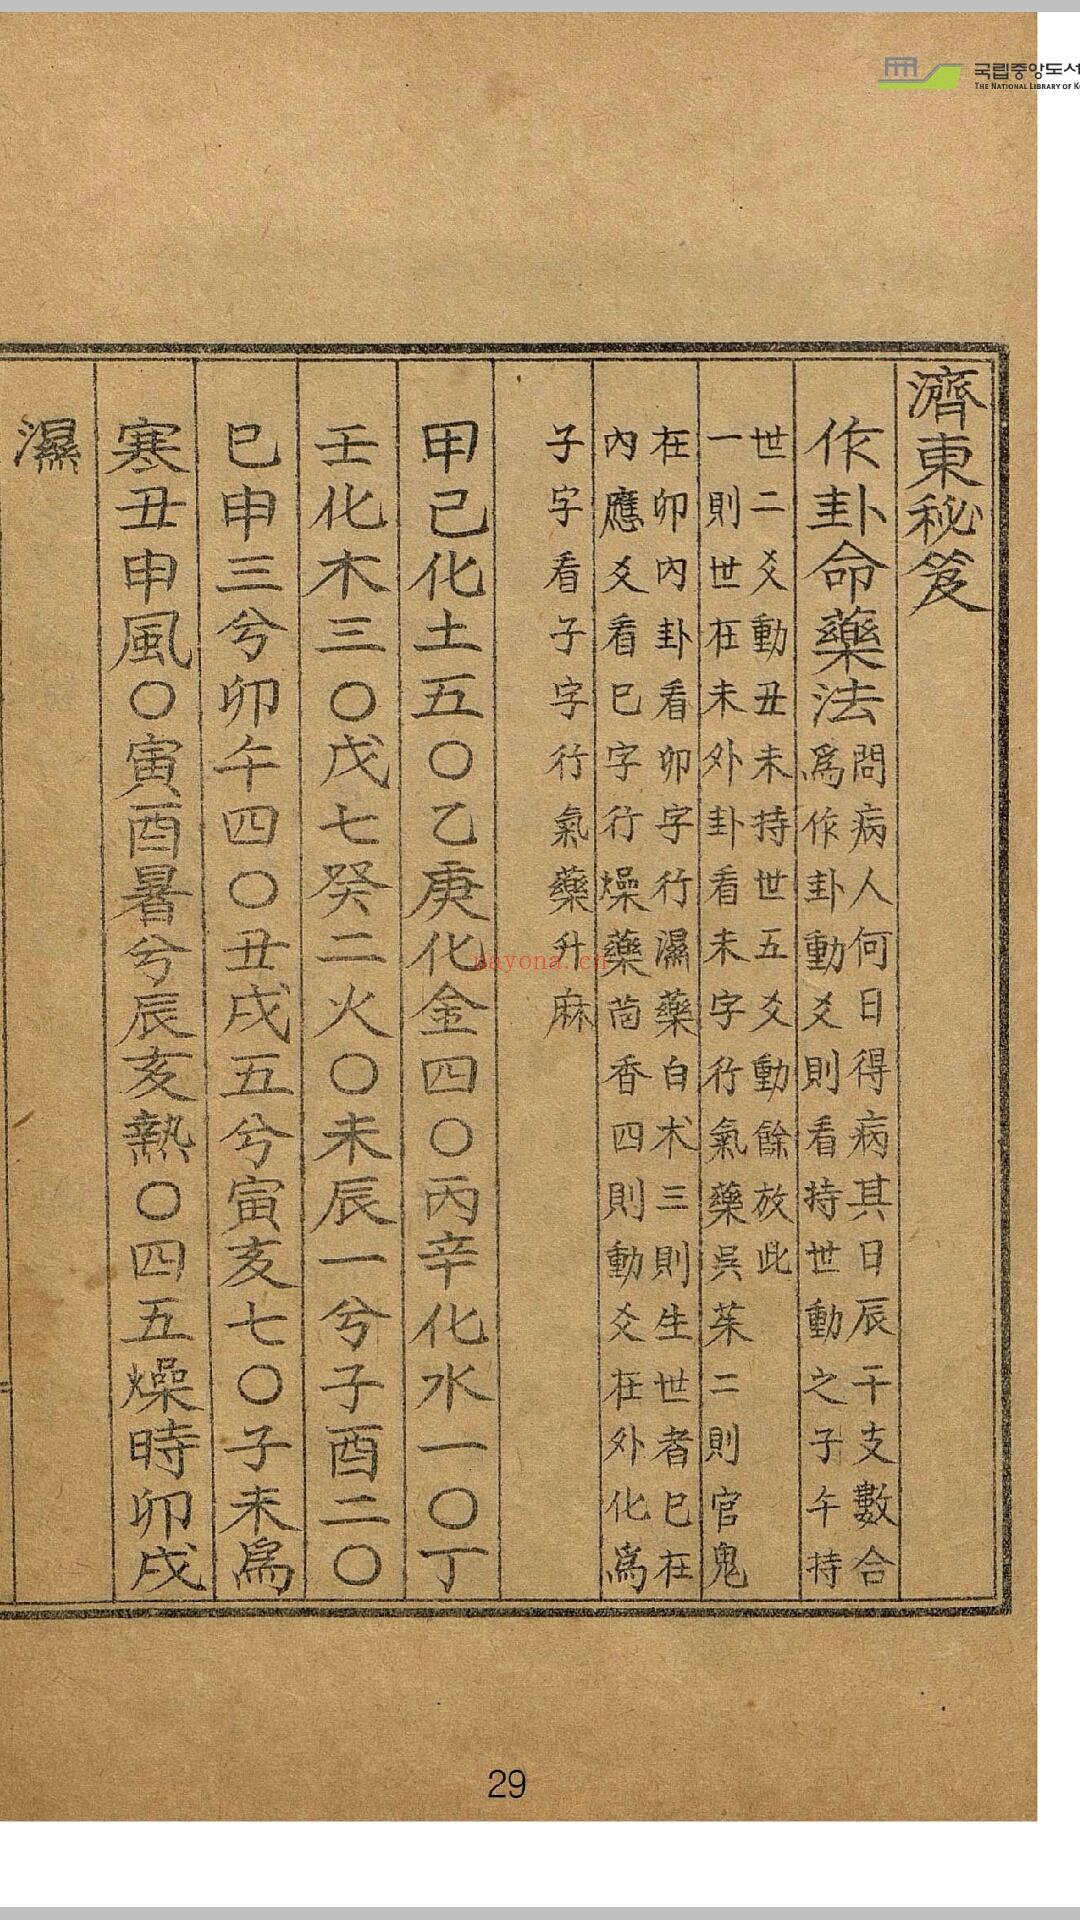 국립중앙도서
THE NATIONAL LIBRARY OF K
濟東秘笈
作卦命藥法
問病人何日得病其日辰干支數合
爲作卦動爻則看持世動之子午持
世二爻動丑未持世五爻動餘放此
一則世在未外卦看未字行氣藥吳茱二則官鬼
在卯內卦看卯字行濕藥白术三則生世者巳在
內應爻看巳字行燥藥茴香四則動爻在外化爲
子字看子字行氣藥升麻
甲己化土五〇乙庚化金四〇丙辛化水一〇丁
壬化木三〇戊七癸二火〇未辰一兮子酉二〇
巳申三兮卯午四〇丑戌五兮寅亥七〇子未爲
寒丑申風〇寅酉暑兮辰亥熱〇四五燥時卯戌
濕
nayona.cn
29